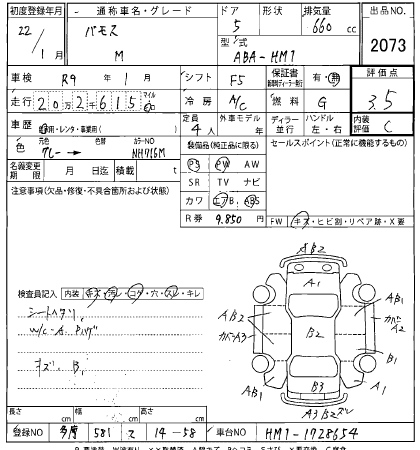 初度登録年月 通称車名・グレード ドア 形状 排気量 出品NO
22/1月 バモス M 5 660cc 2073
型式 ABA-HM1
車検 R9年 1月 シフト F5 保証書 有・無 評価点
走行 20万2千615 マイル 冷房 A/C 燃料 G 3.5
車歴 自家用・レンタ・事業用( ) 定員 4人 外車モデル 年 ディーラー 並行 ハンドル 左・右 内装評価 C
色 元色 グレー → 色替 カラーNO NH716M 装備品(純正品に限る) セールスポイント(正常に機能するもの)
名義変更期限 月 日迄 積載 t PS PW AW
注意事項(欠品・修復・不具合箇所および状態) SR TV ナビ
カワ エアB ABS
R券 9.850円 FW キズ・ヒビ割・リペア跡・X要
検査員記入 内装 キズ・汚レ・コゲ・穴・スレ・キレ
シートヘタリ
W/C-A. P.
キズ. B1
AB2
A1
AB2
カバーA3
B2
AB1
カバーA2
B1
AB1
B3
A1
A3B2
長さ cm 幅 cm 高さ cm
登録NO 多摩 581 ス 14-58 車台NO HM1-1728654